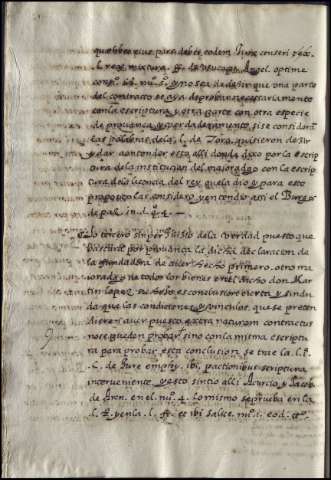 parte debet eodem iure censeri
l. rex mixtura ff. de usucap. Angel. optime
cons. y no sea de dezir que una parte
del contracto se aya de probar necessariamente
con la escriptura y otra parte con otra especie
de provança, y verdaderamente si se consideran
las palabras de la l. de Toro, quisieron dezir
y dar a entender esto alli donde dixo por la escrip
tura de la institucion del mayorazgo con la escrip
tura de la licencia del rey que la dio, y para esto
proposito las considero y entendio assi el Burgos
de paz, in d.
Lo tercero supuesto de la verdad puesto que
por provança la dicha declaracion de
la fundadora de aver hecho primero otro ma
yorazgo de todos los bienes en el dicho don Mar
tin lopez, su hijo es conclusion cierta y sin du
da que las condiciones y vinculos que se preten
dieren aver puesto extra naturam contractus
no se pueden probar sino con la misma escriptu
ra para probar esta conclusion se trae la l. 1.
C. de iure emphy. ibi, pactionibus scriptura
interveniente, y esto sintio alli Acursio y Jacob.
de Aren. en el nu. 4. lo mismo se prueba en la
l. y en la l. ff. ibi Salice. nu. 1. eod. tt.